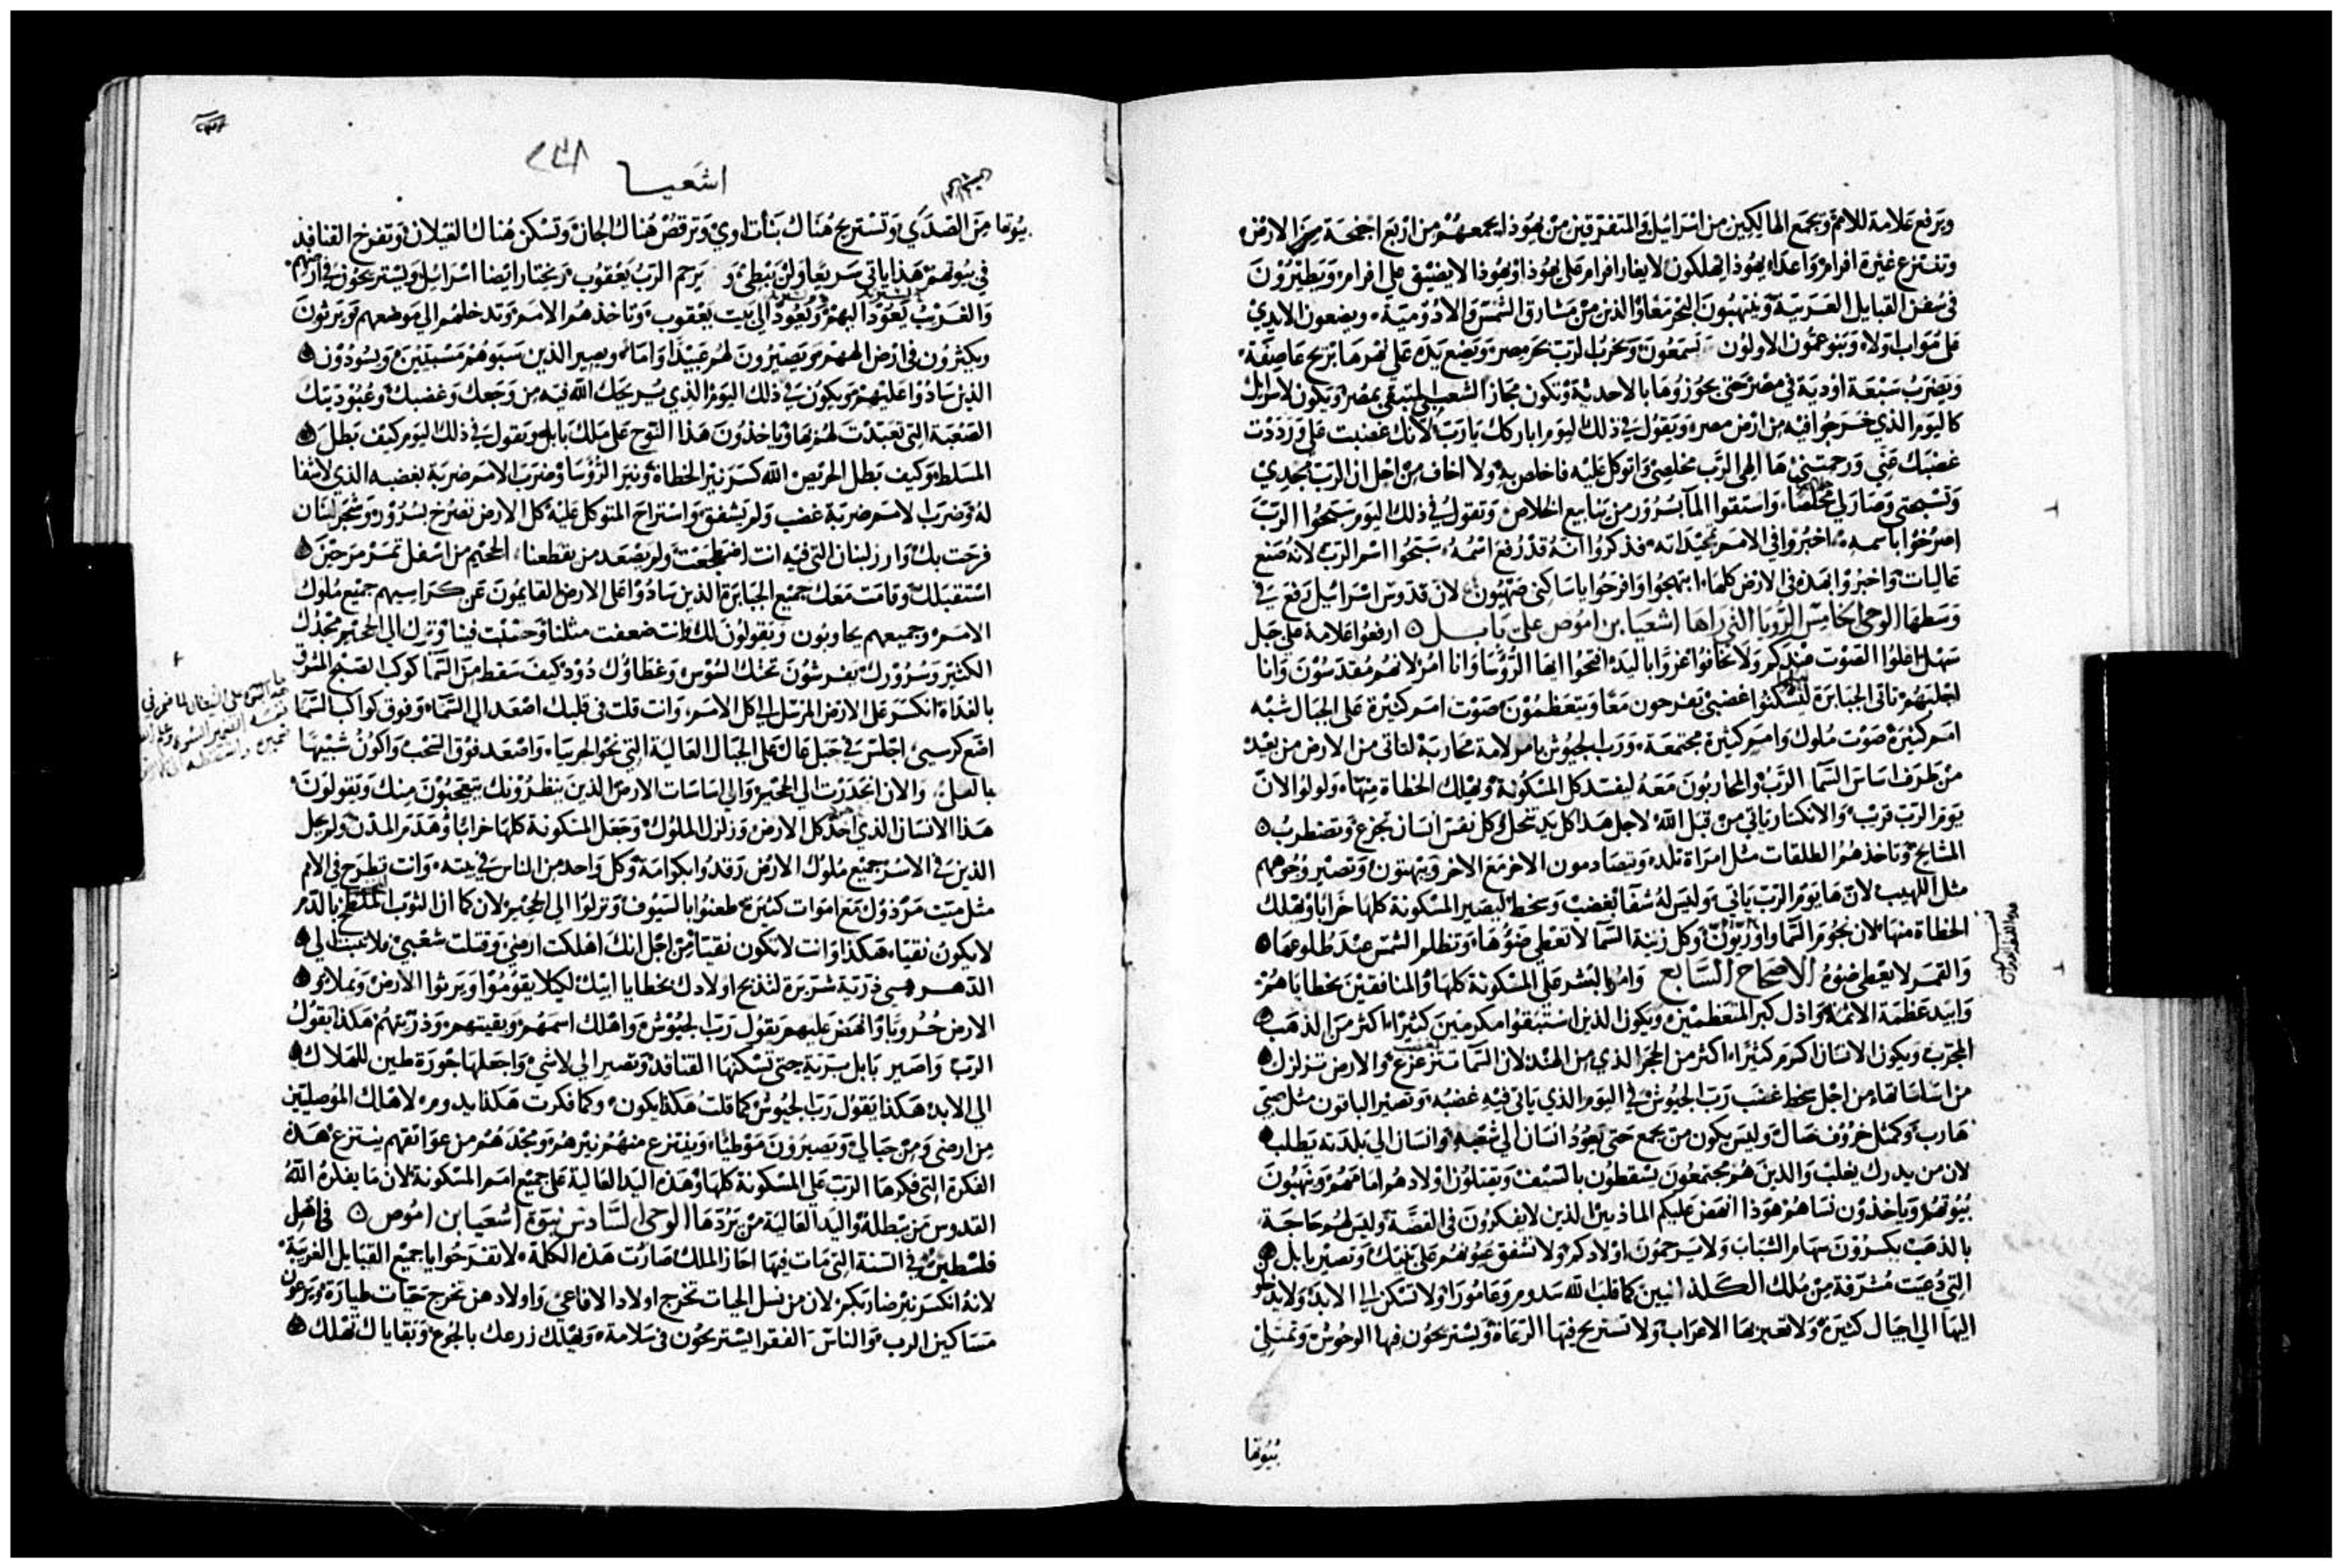 ويرفع علامة للامم ويجمع الهالكين من اسرائيل والمتفرقين من يهوذا يجمعهم من اربع اجنحة الارض
وتنتزع غيرة افرام واعداء يهوذا يهلكون لا يغار افرام على يهوذا ويهوذا لا يضيق على افرام ويطيرون
في سفن القبايل الغريبة وينهبون البحر معا والذين من مشارق الشمس والادومية ويضعون الايدي
على مواب اولا وبنو عمون الاولون يسمعون ويخرب الرب بحر مصر ويضع يده على نهرها بريح عاصفة
ويضرب سبعة اودية في مصر حتى يجوزوها بالاحدية وتكون مجاز الشعبي المتبقي بمصر ويكون لاسرايل
كاليوم الذي خرجوا فيه من ارض مصر ويقول في ذلك اليوم اباركك يارب لانك غضبت علي ورددت
غضبك عني ورحمتني ها الهي الرب مخلصي واتوكل عليه فاخلص به ولا اخاف من اجل ان الرب مجدي
وتسبحتي وصار لي مخلصا واستقوا الما بسرور من ينابيع الخلاص وتقول في ذلك اليوم سبحوا الرب
اصرخوا باسمه اخبروا في الامم تمجيداته فذكروا انه قد رفع اسمه سبحوا اسم الرب لانه صنع
عاليات واخبروا بهذه في الارض كلها ابتهجوا وافرحوا ياساكني صهيون لان قدوس اسرائيل رفع في
وسطها الوحي الخامس الرويا التي راها اشعيا بن اموص على بابل ارفعوا علامة على جبل
سهل اعلوا الصوت منكم ولا تخافوا عزوا باليد افتحوا ايها الروسا وانا امر لانهم مقدسون وانا
اجلبهم تاتي الجبابرة ليسكنوا غضبي يفرحون معا ويتعظمون صوت امم كثيرة على الجبال شبه
امم كثيرة صوت ملوك وامم كثيرة مجتمعة ورب الجيوش يامر لامة محاربة لتاتي من الارض من بعيد
من طرف اساس السما الرب والمحاربون معه ليفسد كل المسكونة ويهلك الخطاة منها ولولوا لان
يوم الرب قريب والانكسار ياتي من قبل الله لاجل هذا كل يد تنحل وكل نفس انسان تجزع وتضطرب
المشايخ وتاخذهم الطلقات مثل امراة تلد ويتصادمون الاخر مع الاخر ويبهتون وتصير وجوههم
مثل اللهيب لان ها يوم الرب ياتي وليس له شفا بغضب وسخط ليصير المسكونة كلها خرابا ويهلك
الخطاة منها لان نجوم السما واوريون وكل زينة السما لا تعطي ضوها وتظلم الشمس عند طلوعها
والقمر لا يعطي ضوه الاصحاح السابع وامر بالشر على المسكونة كلها والمنافقين بخطاياهم
وابيد عظمة الاثمة واذل كبر المتعظمين ويكون الذين استبقوا مكرمين كثيرا اكثر من الذهب
المجرب ويكون الانسان اكرم كثيرا اكثر من الحجر الذي من الهند لان السما ستزعزع والارض تزلزل
من اساساتها من اجل سخط غضب رب الجيوش في اليوم الذي ياتي فيه غضبه وتصير الباقون مثل صبي
هارب وكمثل خروف ضال وليس يكون من يجمع حتى يعود انسان الى شعبه وانسان الى بلدته يطلب
لان من يدرك يغلب والذين هم مجتمعون يسقطون بالسيف ويقتلون اولادهم امامهم وينهبون
بيوتهم وياخذون نساهم هوذا انهض عليكم الماذيين الذين لا يفكرون في الفضة وليس لهم حاجة
بالذهب يكسرون سهام الشباب ولا يرحمون اولادكم ولا تشفق عيونهم على بنيك وتصير بابل
التي دعيت مشرفة من ملك الكلدانيين كما قلب الله سدوم وعامورا ولا تسكن الى الابد ولا يدخلو
اليها الى اجيال كثيرة ولا تعبر بها الاعراب ولا تستريح فيها الرعاة ويستريحون فيها الوحوش وتمتلي
بيوتها
اشعيا
٢٣٨
بيوتها من الصدى وتستريح هناك بنات اوي وترقص هناك الجان وتسكن هناك الغيلان وتفرخ القنافذ
في بيوتهم هذا ياتي سريعا ولن يبطئ و يرحم الرب يعقوب ويختار ايضا اسرائيل ويستريحون في ارضهم
والغريب يعود اليهم ويعود الى بيت يعقوب وتاخذهم الامم وتدخلهم الى موضعهم ويرثون
ويكثرون في ارض الههم ويصيرون لهم عبيدا واما ويصير الذين سبوهم مسبيين ويسودون
الذين سادوا عليهم ويكون في ذلك اليوم الذي يريحك الله فيه من وجعك وغضبك وعبوديتك
الصعبة التي تعبدت لهم بها وياخذون هذا النوح على ملك بابل ويقول في ذلك اليوم كيف بطل
المسلط وكيف بطل الحريص الله كسر نير الخطاة ونير الروسا وضرب الامم ضربة بغضبه الذي لا شفا
له وضرب الامم ضربة غضب ولم يشفق واستراح المتوكل عليه كل الارض تصرخ بسرور وشجر لبنان
فرحت بك وارز لبنان التي فيه انت اضطجعت ولم يصعد من يقطعنا الجحيم من اسفل تمرمر حين
استقبلك وقامت معك جميع الجبابرة الذين سادوا على الارض القايمون عن كراسيهم جميع ملوك
الامم وجميعهم يجاوبون ويقولون لك انت ضعفت مثلنا وحسبت فينا ونزل الى الجحيم مجدك
الكثير وسرورك يفرشون تحتك السوس وغطاوك دود كيف سقط من السما كوكب الصبح المشرق
بالغداة انكسر على الارض المرسل الى كل الامم وانت قلت في قلبك اصعد الى السما وفوق كواكب السما
اضع كرسيي اجلس في جبل عال على الجبال العالية التي نحو الجربيا واصعد فوق السحب واكون شبيها
بالعلي والان انحدرت الى الجحيم والى اساسات الارض الذين ينظرونك يتعجبون منك ويقولون
هذا الانسان الذي اخذ كل الارض وزلزل الملوك وجعل المسكونة كلها خرابا وهدم المدن ولم يحل
الذين في الاسر جميع ملوك الارض رقدوا بكرامة وكل واحد من الناس في بيته وانت تطرح في الامم
مثل ميت مرذول مع اموات كثيرة طعنوا بالسيوف ونزلوا الى الجحيم لان كما ان الثوب الملطخ بالدم
لا يكون نقيا هكذا وانت لا تكون نقيا من اجل انك اهلكت ارضي وقتلت شعبي فلا تثبت الى
الدهر هيي ذرية شريرة لتذبح اولادك بخطايا ابيك لكيلا يقوموا ويرثوا الارض ويملاو
الارض حروبا وانهض عليهم يقول رب الجيوش واهلك اسمهم وبقيتهم وذريتهم هكذا يقول
الرب واصير بابل برية حتى تسكنها القنافد وتصير الى لا شي واجعلها جورة طين للهلاك
الى الابد هكذا يقول رب الجيوش كما قلت هكذا يكون وكما فكرت هكذا يدوم لاهلك الموصليين
من ارضي ومن جبالي وتصيرون موطيا وينتزع منهم نيرهم ومجدهم من عواتقهم ينتزع هذه
الفكرة التي فكرها الرب على المسكونة كلها وهذه اليد العالية على جميع امم المسكونة لان ما يفكره الله
القدوس من يبطله واليد العالية من يردها الوحي السادس نبوة اشعيا بن اموص في اهل
فلسطين في السنة التي مات فيها احاز الملك صارت هذه الكلمة لا تفرحوا ياجميع القبايل الغريبة
لانه انكسر نير ضاربكم لان من نسل الحيات تخرج اولاد الافاعي واولادهن تخرج حيات طيارة ويرعون
مساكين الرب والناس الفقرا يستريحون في سلامة ويهلك زرعك بالجوع وبقاياك تهلك